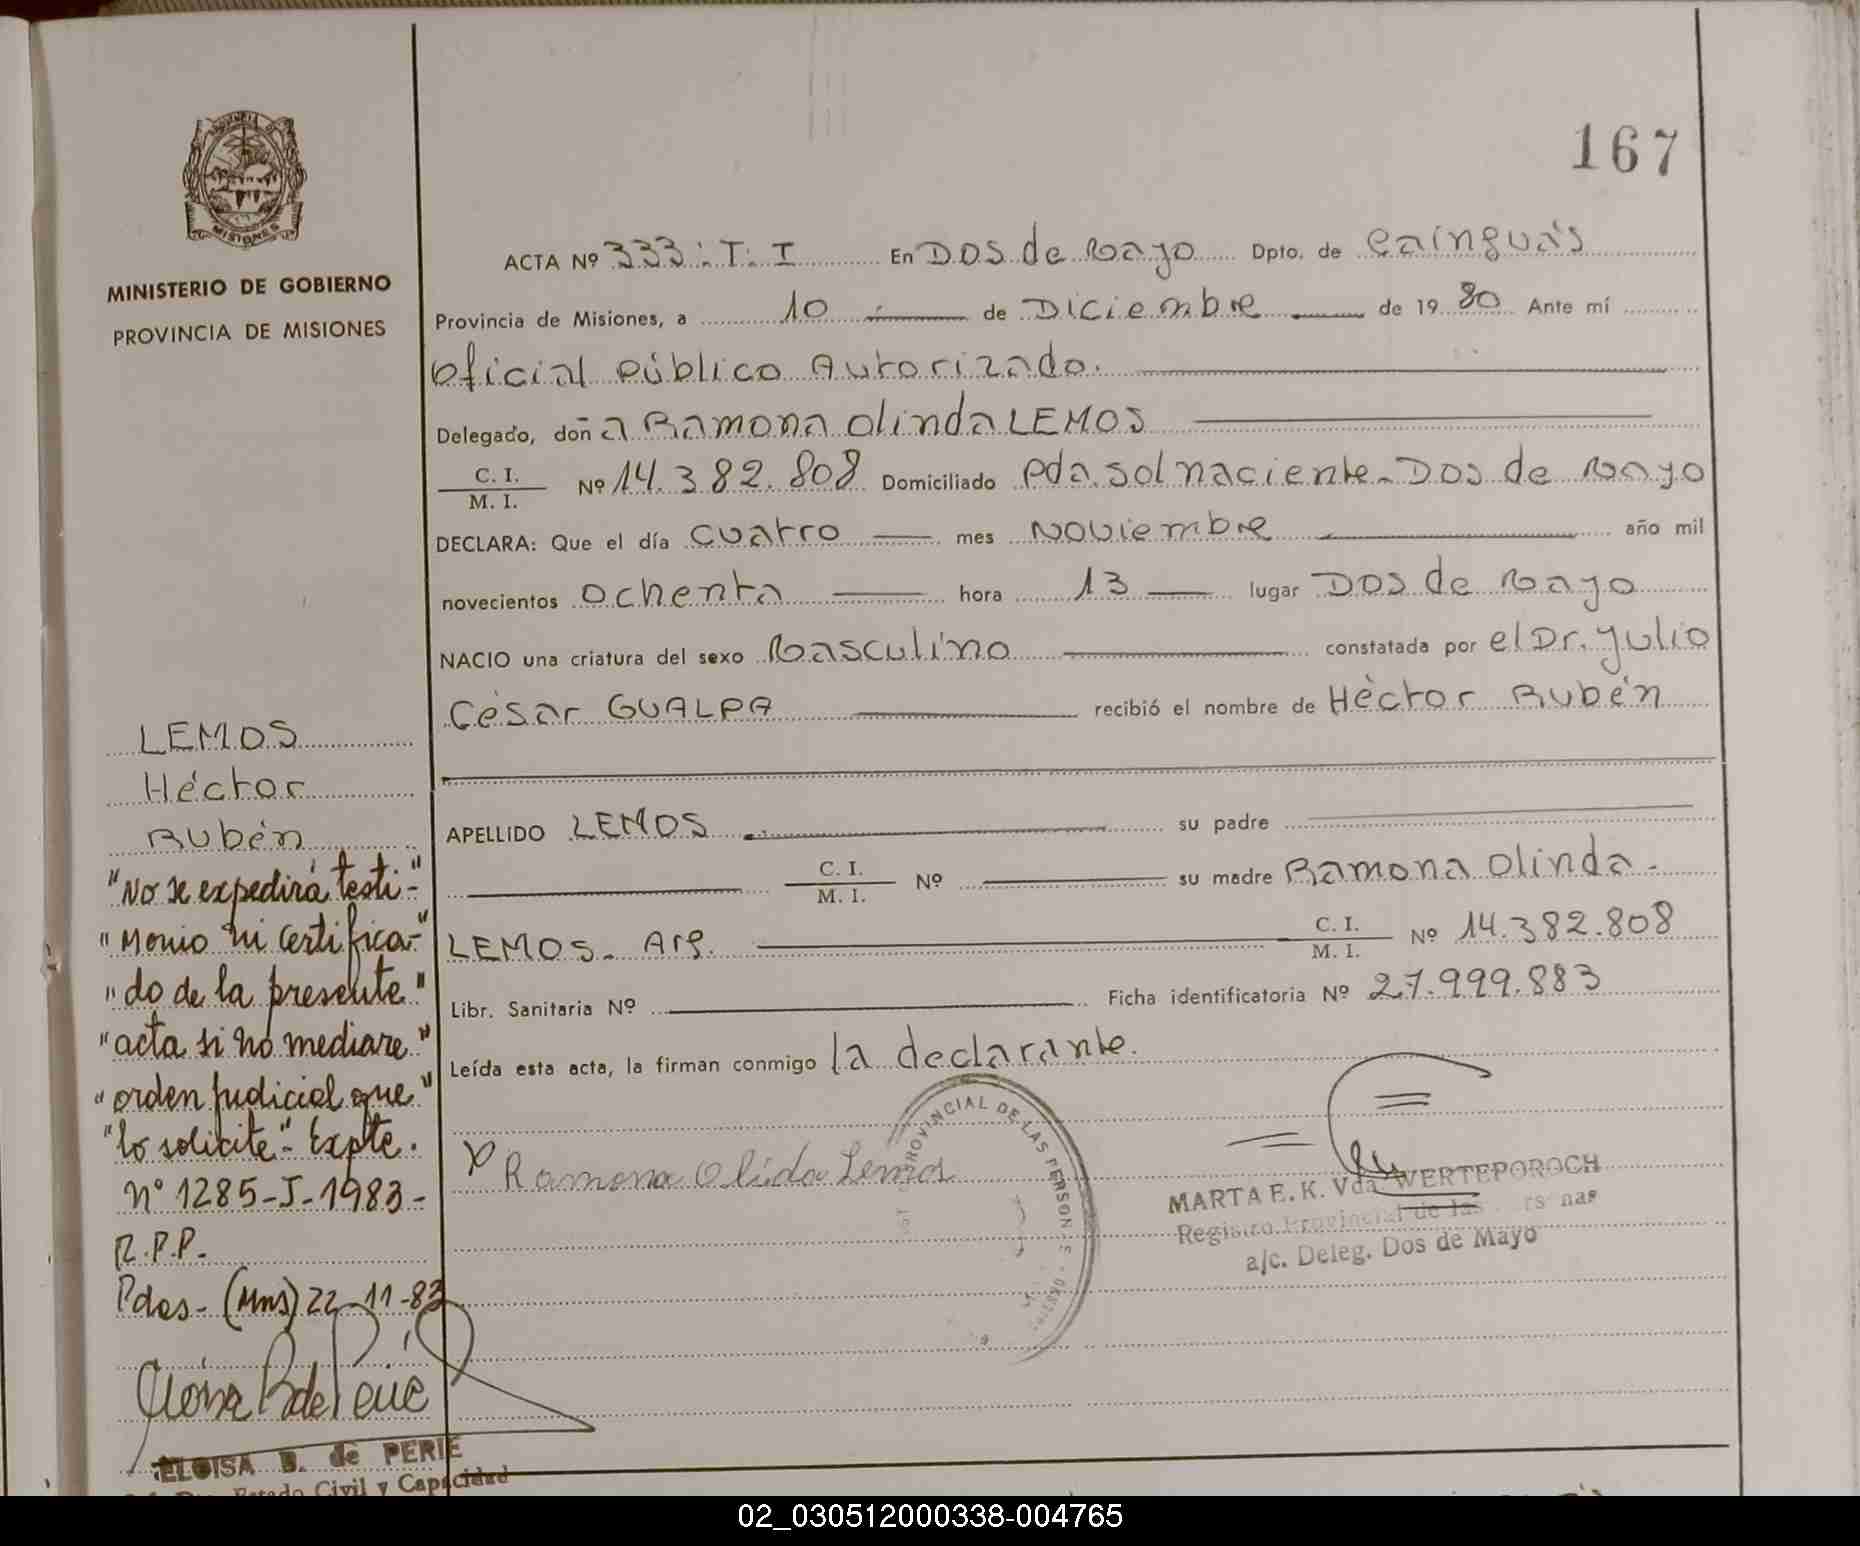 167
PROVINCIA DE
MISIONES
MINISTERIO DE GOBIERNO
PROVINCIA DE MISIONES
ACTA Nº 333. T. I En Dos de Mayo Dpto. de Cainguás
Provincia de Misiones, a 10 de Diciembre de 1980 Ante mí
Oficial Público Autorizado.
Delegado, doña Ramona Olinda LEMOS
C. I.
M. I. Nº 14.382.808 Domiciliado Pda. Sol naciente - Dos de Mayo
DECLARA: Que el día cuatro mes Noviembre año mil
novecientos ochenta hora 13 lugar Dos de Mayo
NACIO una criatura del sexo Masculino constatada por el Dr. Julio
César GUALPA recibió el nombre de Héctor Rubén
APELLIDO LEMOS su padre
C. I.
M. I. Nº su madre Ramona Olinda -
LEMOS - Arg. C. I.
M. I. Nº 14.382.808
Libr. Sanitaria Nº Ficha identificatoria Nº 27.999.883
Leída esta acta, la firman conmigo la declarante.
Ramona Olida Lemos
PROVINCIAL DE LAS PERSON
MARTA E. K. Vda. WERTEPOROCH
Registro Provincial de las
a/c. Deleg. Dos de Mayo
LEMOS
Héctor
Rubén
"No se expedirá testi-"
"monio ni certifica-"
"do de la presente"
"acta si no mediare"
"orden judicial que"
"lo solicite" - Expte.
Nº 1285-J-1983-
R.P.P.
Pdas - (Mns) 22-11-83
ELOISA B. de PERIE
Estado Civil y Capacidad
02_030512000338-004765